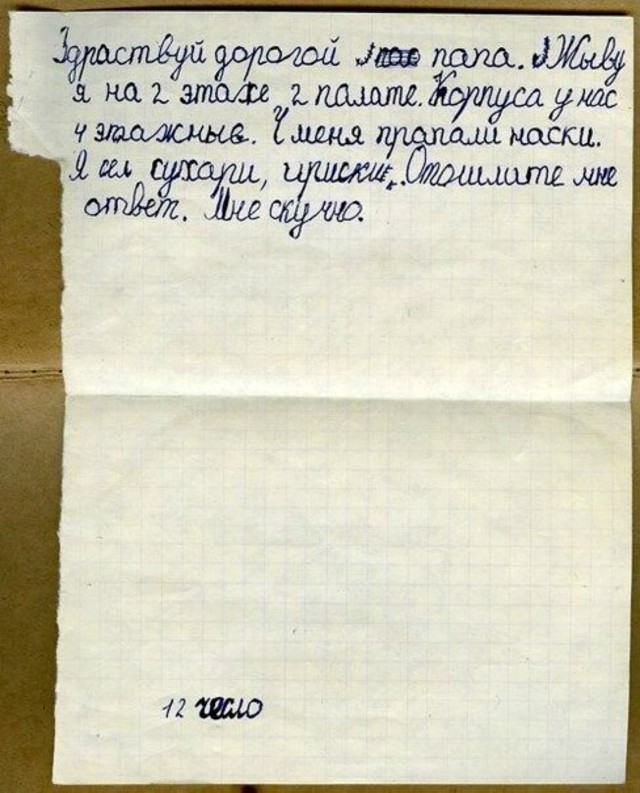 Здраствуй дорогой папа. Жыву
я на 2 этаже, 2 палате. Корпуса у нас
4 этажныв. У меня пропали наски.
Я ел сухари, ириски. Отошлите мне
ответ. Мне скучно.
12 число